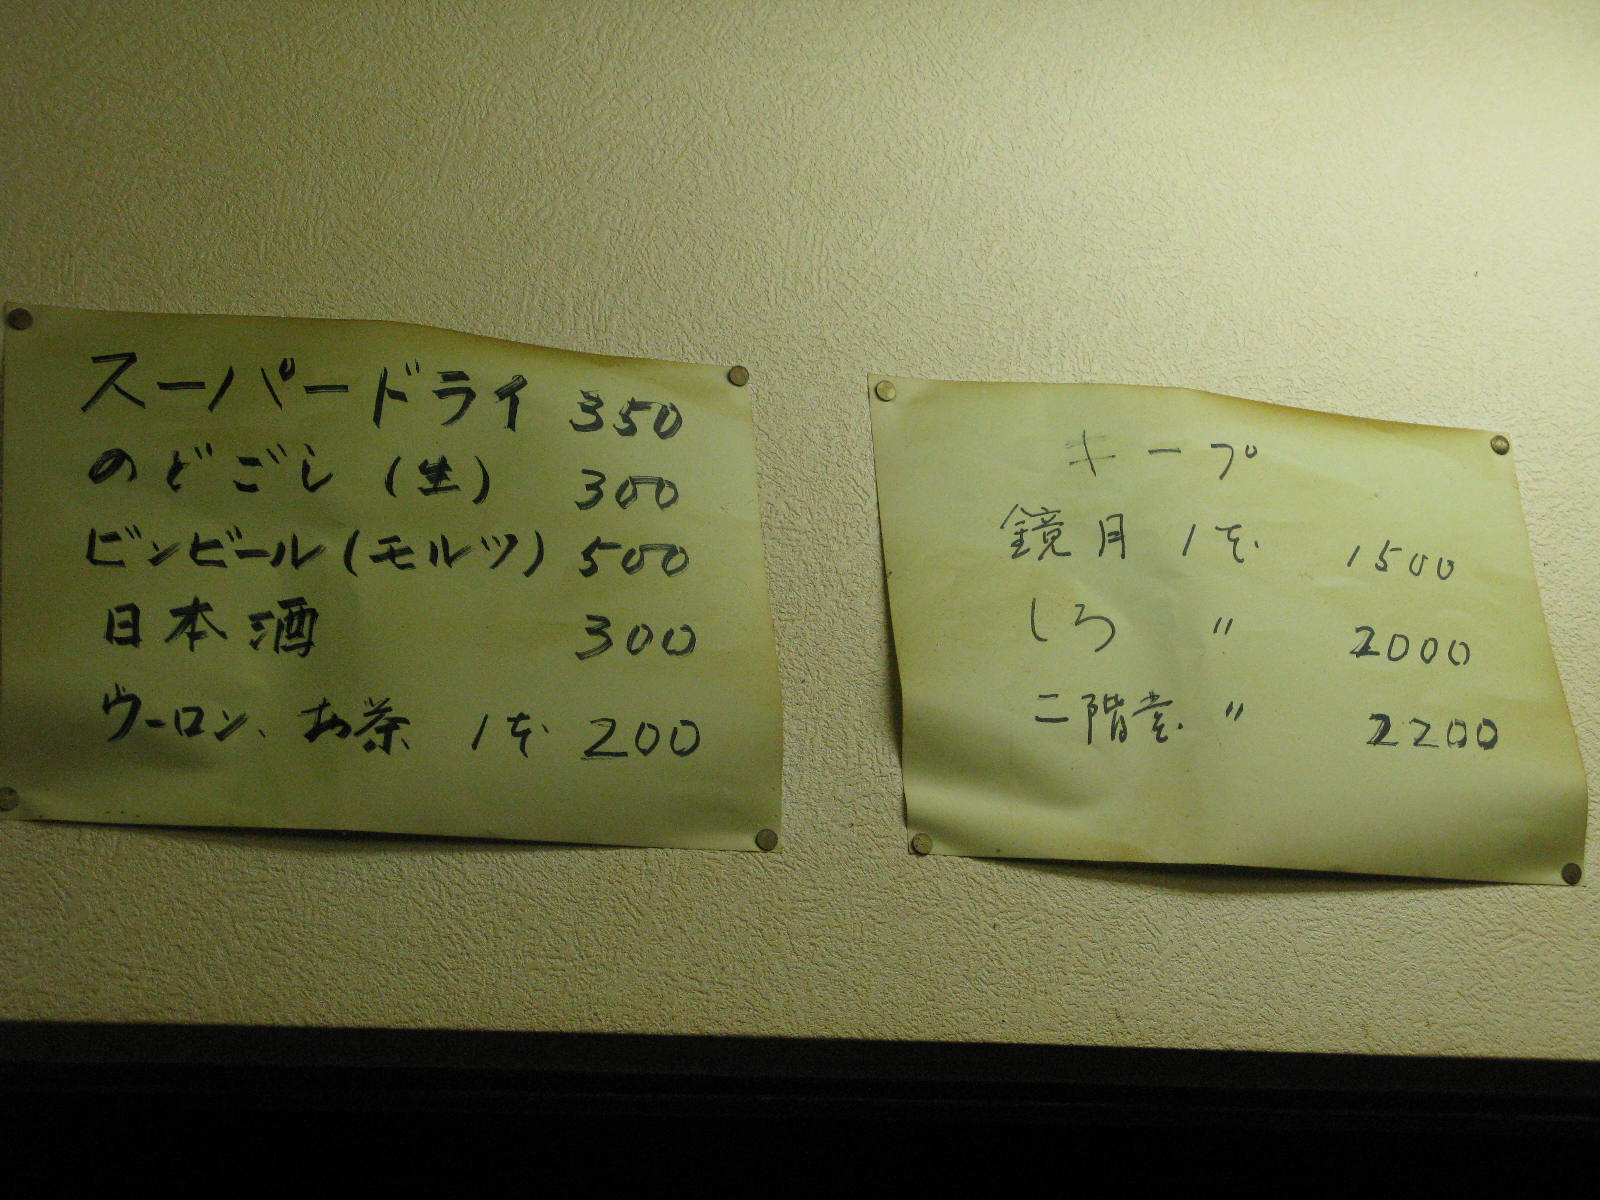 スーパードライ 350
のどごし (生) 300
ビンビール (モルツ) 500
日本酒 300
ウーロン、お茶 1本 200
キープ
鏡月 1本 1500
しろ 〃 2000
二階堂 〃 2200